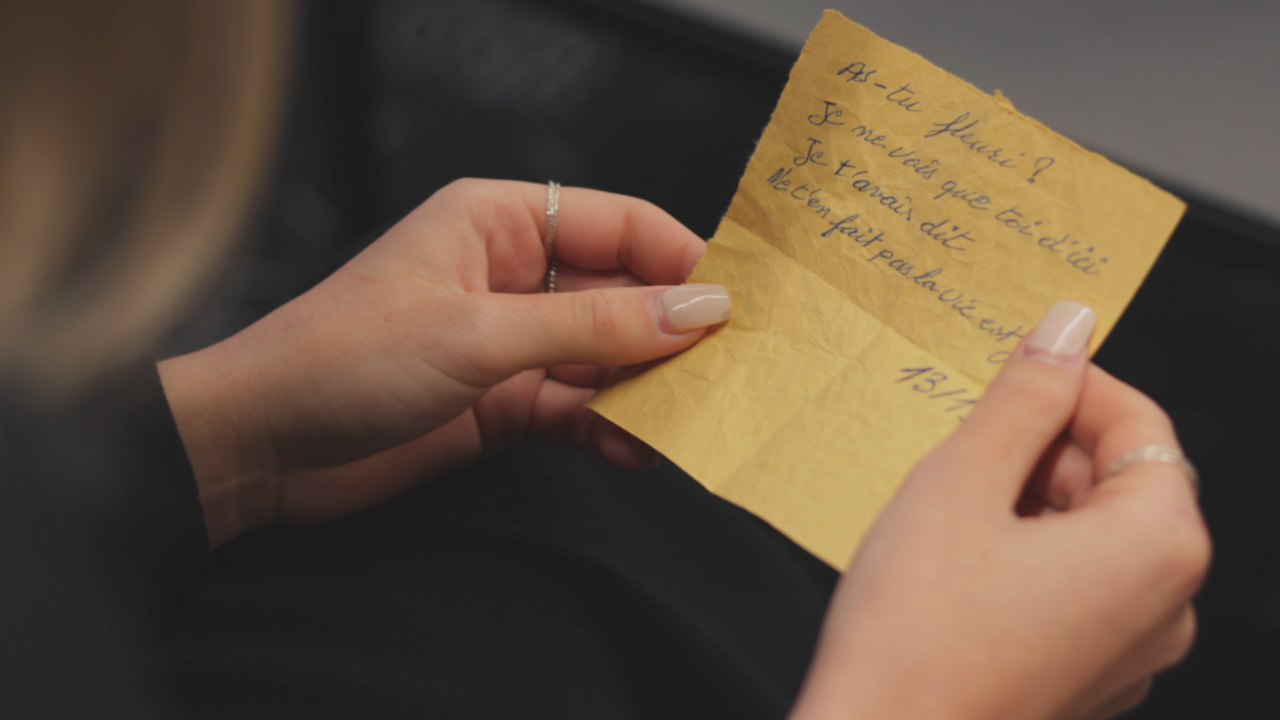 As-tu fleuri ?
Je ne vois que toi d'ici
Je t'avais dit
Ne t'en fait pas la vie est
13/1